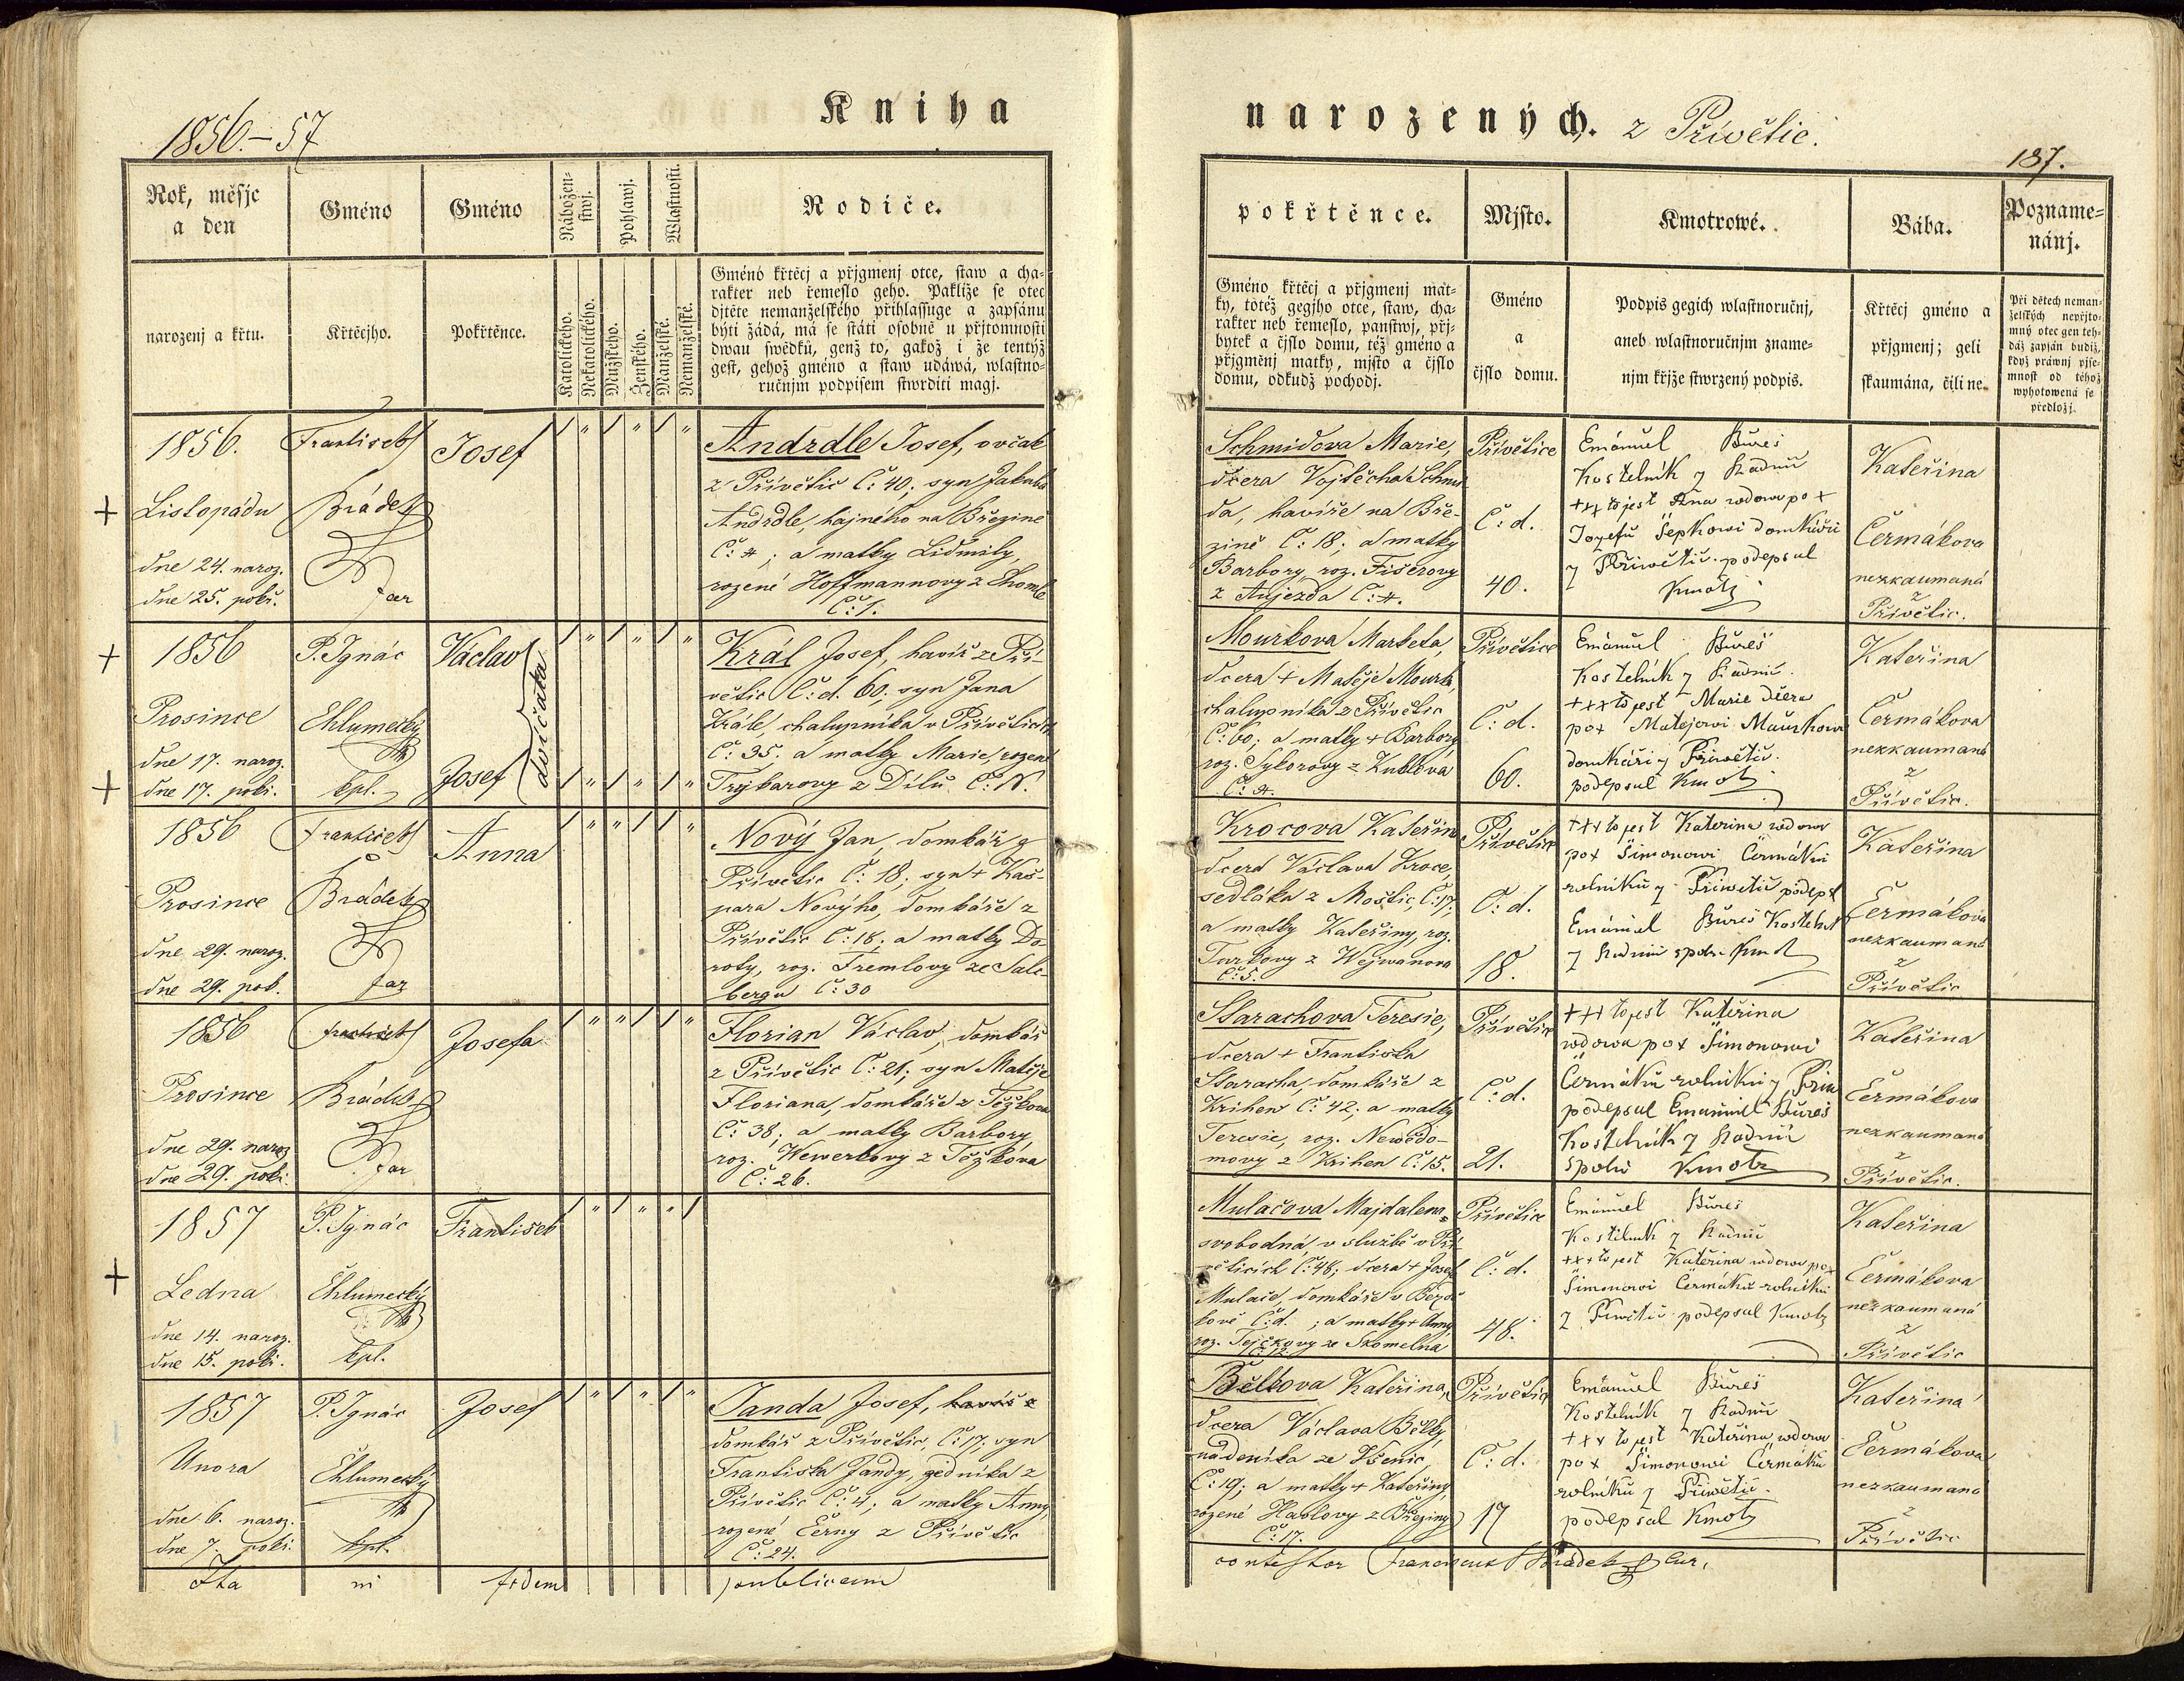 1856.–57
Kniha
narozených. z Přívětic.
187.
Rok, měsjc
a den
Gméno
Gméno
Nábožen-
stwj.
Pohlawj.
Wlastnosti.
Rodiče.
narozenj a křtu.
Křtěcjho.
Pokřtěnce.
Katolického.
Nekatolického.
Mužského.
Ženského.
Manželské.
Nemanželské.
Gméno křtěcj a přjgmenj otce, staw a cha-
rakter neb řemeslo geho. Pakliže se otec
djtěte nemanželského přihlassuge a zapsánu
býti žádá, má se státi osobně u přjtomnosti
dwau swědků, genž to, gakož i že tentýž
gest, gehož gméno a staw udáwá, wlastno-
ručnjm podpisem stwrditi magj.
pokřtěnce.
Mjsto.
Kmotrowé.
Bába.
Pozname-
nánj.
Gméno křtěcj a přjgmenj mat-
ky, totéž gegjho otce, staw, cha-
rakter neb řemeslo, panstwj, přj-
bytek a čjslo domu, též gméno a
přjgmenj matky, mjsto a čjslo
domu, odkudž pocházj.
Gméno
a
čjslo domu.
Podpis gegich wlastnoručnj,
aneb wlastnoručnjm zname-
njm křjže stwrzený podpis.
Křtěcj gméno a
přjgmenj; geli
skaumána, čili ne.
Při dětech neman-
želských nepřjto-
mný otec gen teh-
dáž zapsán budiž,
když práwnj pjse-
mnost od téhož
wyhotowená se
předložj.
1856.
Listopádu
dne 24. naroz.
dne 25. pokř.
František
Brádek
far
Josef
Andrdle Josef, ovčák
z Přívětic Č: 40; syn Jakuba
Andrdle, hajného na Březině
Č: 4; a matky Lidmily
rozené Hoffmannovy z Chomle
Č: 1.
Schmidova Marie,
dcera Vojtěcha Schmi
da, havíře na Bře-
zině Č: 18; a matky
Barbory, roz. Fišerovy
z Aujezda Č: 4.
Přívětice
Č: d.
40.
Emánuel Bureš
Kostelník z Radnic
+++ to jest Ana wdowa po +
Jozefu Šepkowi domkáři
z Přiwětic podepsal
Kmotr
Kateřina
Čermákova
nezkaumaná
z
Přívětic.
1856
Prosince
dne 17. naroz.
dne 17. pokř.
P. Ignác
Chlumecký
kpl.
Václav
Josef
dvojčata
Král Josef, havíř z Pří-
větic Č: d. 60, syn Jana
Krále, chalupníka v Příveticích
Č: 35. a matky Marie, rozené
Trykarovy z Dílů Č: N.
Mourkova Marketa,
dcera + Matěje Mourk,
chalupníka z Přívětic
Č: 60; a matky + Barbory
roz. Sykorovy z
Č: 4.
Přívětice
Č: d.
60.
Emánuel Bureš
Kostelník z Radnic.
+++ to jest Marie dcera
po + Matejowi Maurkowi
domkáři z Přiwětic.
podepsal Kmotr
Kateřina
Čermákova
nezkaumaná
z
Přívětic.
1856
Prosince
dne 29. naroz.
dne 29. pok.
František
Brádek
far
Anna
Nový Jan, domkář z
Přívětic Č: 18; syn + Kaš-
para Novýho, domkáře z
Přívětic Č: 18; a matky Do-
roty, roz. Fremlovy ze Salc-
bergu Č: 30
Krocova Kateřin
dcera Václava Kroce,
sedláka z Moštic, Č: 17;
a matky Kateřiny, roz.
Turkovy z Wejwanova
Č: 5.
Přívětic
Č: d.
18.
+++ to jest Kateřina wdowa
po + Šimonowi Čermákwi
rolníku z Přiwětic podeps
Emánuel Bureš Kostelník
z Radnic spolu Kmot
Kateřina
Čermákova
nezkaumaná
z
Přívětic
1856
Prosince
dne 29. naroz
dne 29. pokř.
František
Brádek
far
Josefa
Florian Václav, domkář
z Přívětic Č: 21; syn Matěje
Floriana, domkáře z Těškova
Č: 38; a matky Barbory,
roz. Wewerkovy z Těškova
Č: 26.
Starachova Teresie,
dcera + Františka
Staracha, domkáře z
Krihen Č: 42; a matky
Teresie, roz. Newědo-
movy z Krihen Č: 15.
Přívětice
Č: d.
21.
+++ to jest Kateřina
wdowa po + Šimonowi
Čermáku rolníku z Přiw
podepsal Emanuel Bureš
Kostelník z Radnic
spolu Kmotr
Kateřina
Čermákova
nezkaumaná
z
Přívětic.
1857
Ledna
dne 14. naroz.
dne 15. pokř.
P. Ignác
Chlumecký
kpl.
František
Mulačova Majdalena,
svobodná, v službě v Pří
věticích Č: 48; dcera + Josef
Mulače, domkáře v Bezdě
kově Č: d. ; a matky + Anny
roz. Tejčkovy ze Skomelna
Přívětice
Č: d.
48.
Emánuel Bureš
Kostelník z Radnic
+++ to jest Kateřina wdowa po +
Šimonowi Čermáku rolníku
z Přiwětic podepsal Kmotr
Kateřina
Čermákova
nezkaumaná
z
Přívětic
1857
Unora
dne 6. naroz.
dne 7. pokř.
P. Ignác
Chlumecký
kpl.
Josef
Janda Josef, havíř z
domkář z Přívětic, Č: 17; syn
Františka Jandy, zedníka z
Přívětic Č: 4; a matky Anny,
rozené Černy z Přívětic
Č: 24.
Bělkova Kateřina,
dcera Václava Bělky,
nádeníka ze Všenic,
Č: 19; a matky + Kateřiny,
rozené Haslovy z Březiny
Č: 17.
Přívětic
Č: d.
17
Emánuel Bureš
Kostelník z Radnic
+++ to jest Kateřina wdowa
po + Šimonowi Čermáku
rolníku z Přiwětic.
podepsal Kmotr
Kateřina
Čermákova
nezkaumaná
z
Přívětic
Ita in fidem publicam
contestor Franciscus Brádek Cur.